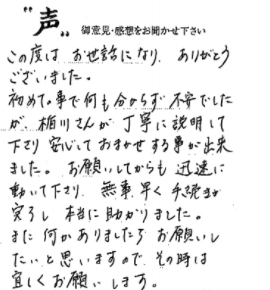 "声"
御意見・感想をお聞かせ下さい
この度は お世話になり ありがとう
ございました。
初めての事で何も分からず 不安でした
が 柏川さんが 丁寧に説明して
下さり 安心しておまかせする事が出来
ました。お願いしてからも 迅速に
動いて下さり 無事 早く 手続きが
完了し 本当に助かりました。
また 何かありましたら お願いし
たいと思いますので その時は
宜しくお願いします。